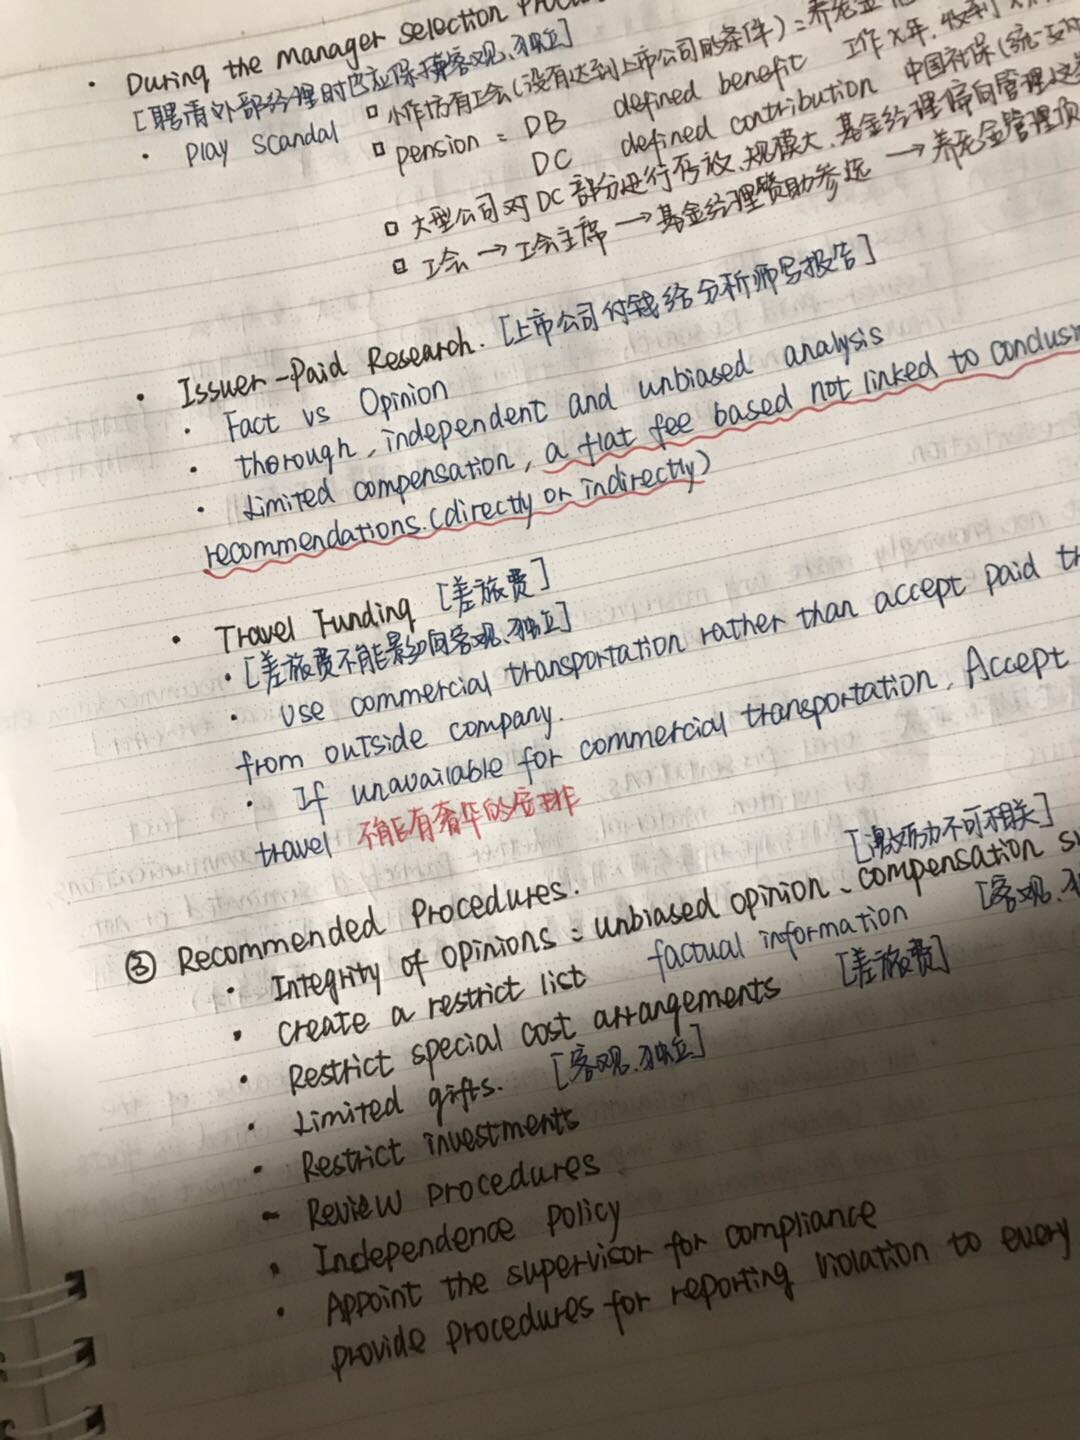 During the manager selection
[聘清外部经理时也应保持兼客观、独立]
Play scandal
小作坊有工会(没有达到上市公司的条件)=养老金
pension = DB defined benefit 工作x年,收到
DC defined contribution 中国社保(统一
大型公司对DC部分进行存放、规模大、基金经理倾向管理这
工会→工会主席→基金经理赞助参选→养老金管理
Issuer-Paid Research. [上市公司付钱给分析师写报告]
Fact vs Opinion
thorough, independent and unbiased analysis
Limited compensation, a flat fee based not linked to conclus
recommendations.(directly or indirectly)
Travel Funding [差旅费]
[差旅费不能影响客观、独立]
Use commercial transportation rather than accept paid tr
from outside company.
If unavailable for commercial transportation, Accept
travel 不能有奢华的安排
③ Recommended Procedures. [激励不可相关]
Integrity of opinions = unbiased opinion、compensation s
create a restrict list factual information [客观、
Restrict special cost arrangements [差旅费]
Limited gifts. [客观、独立]
Restrict investments
Review procedures
Independence policy
Appoint the supervisor for compliance
provide procedures for reporting violation to every